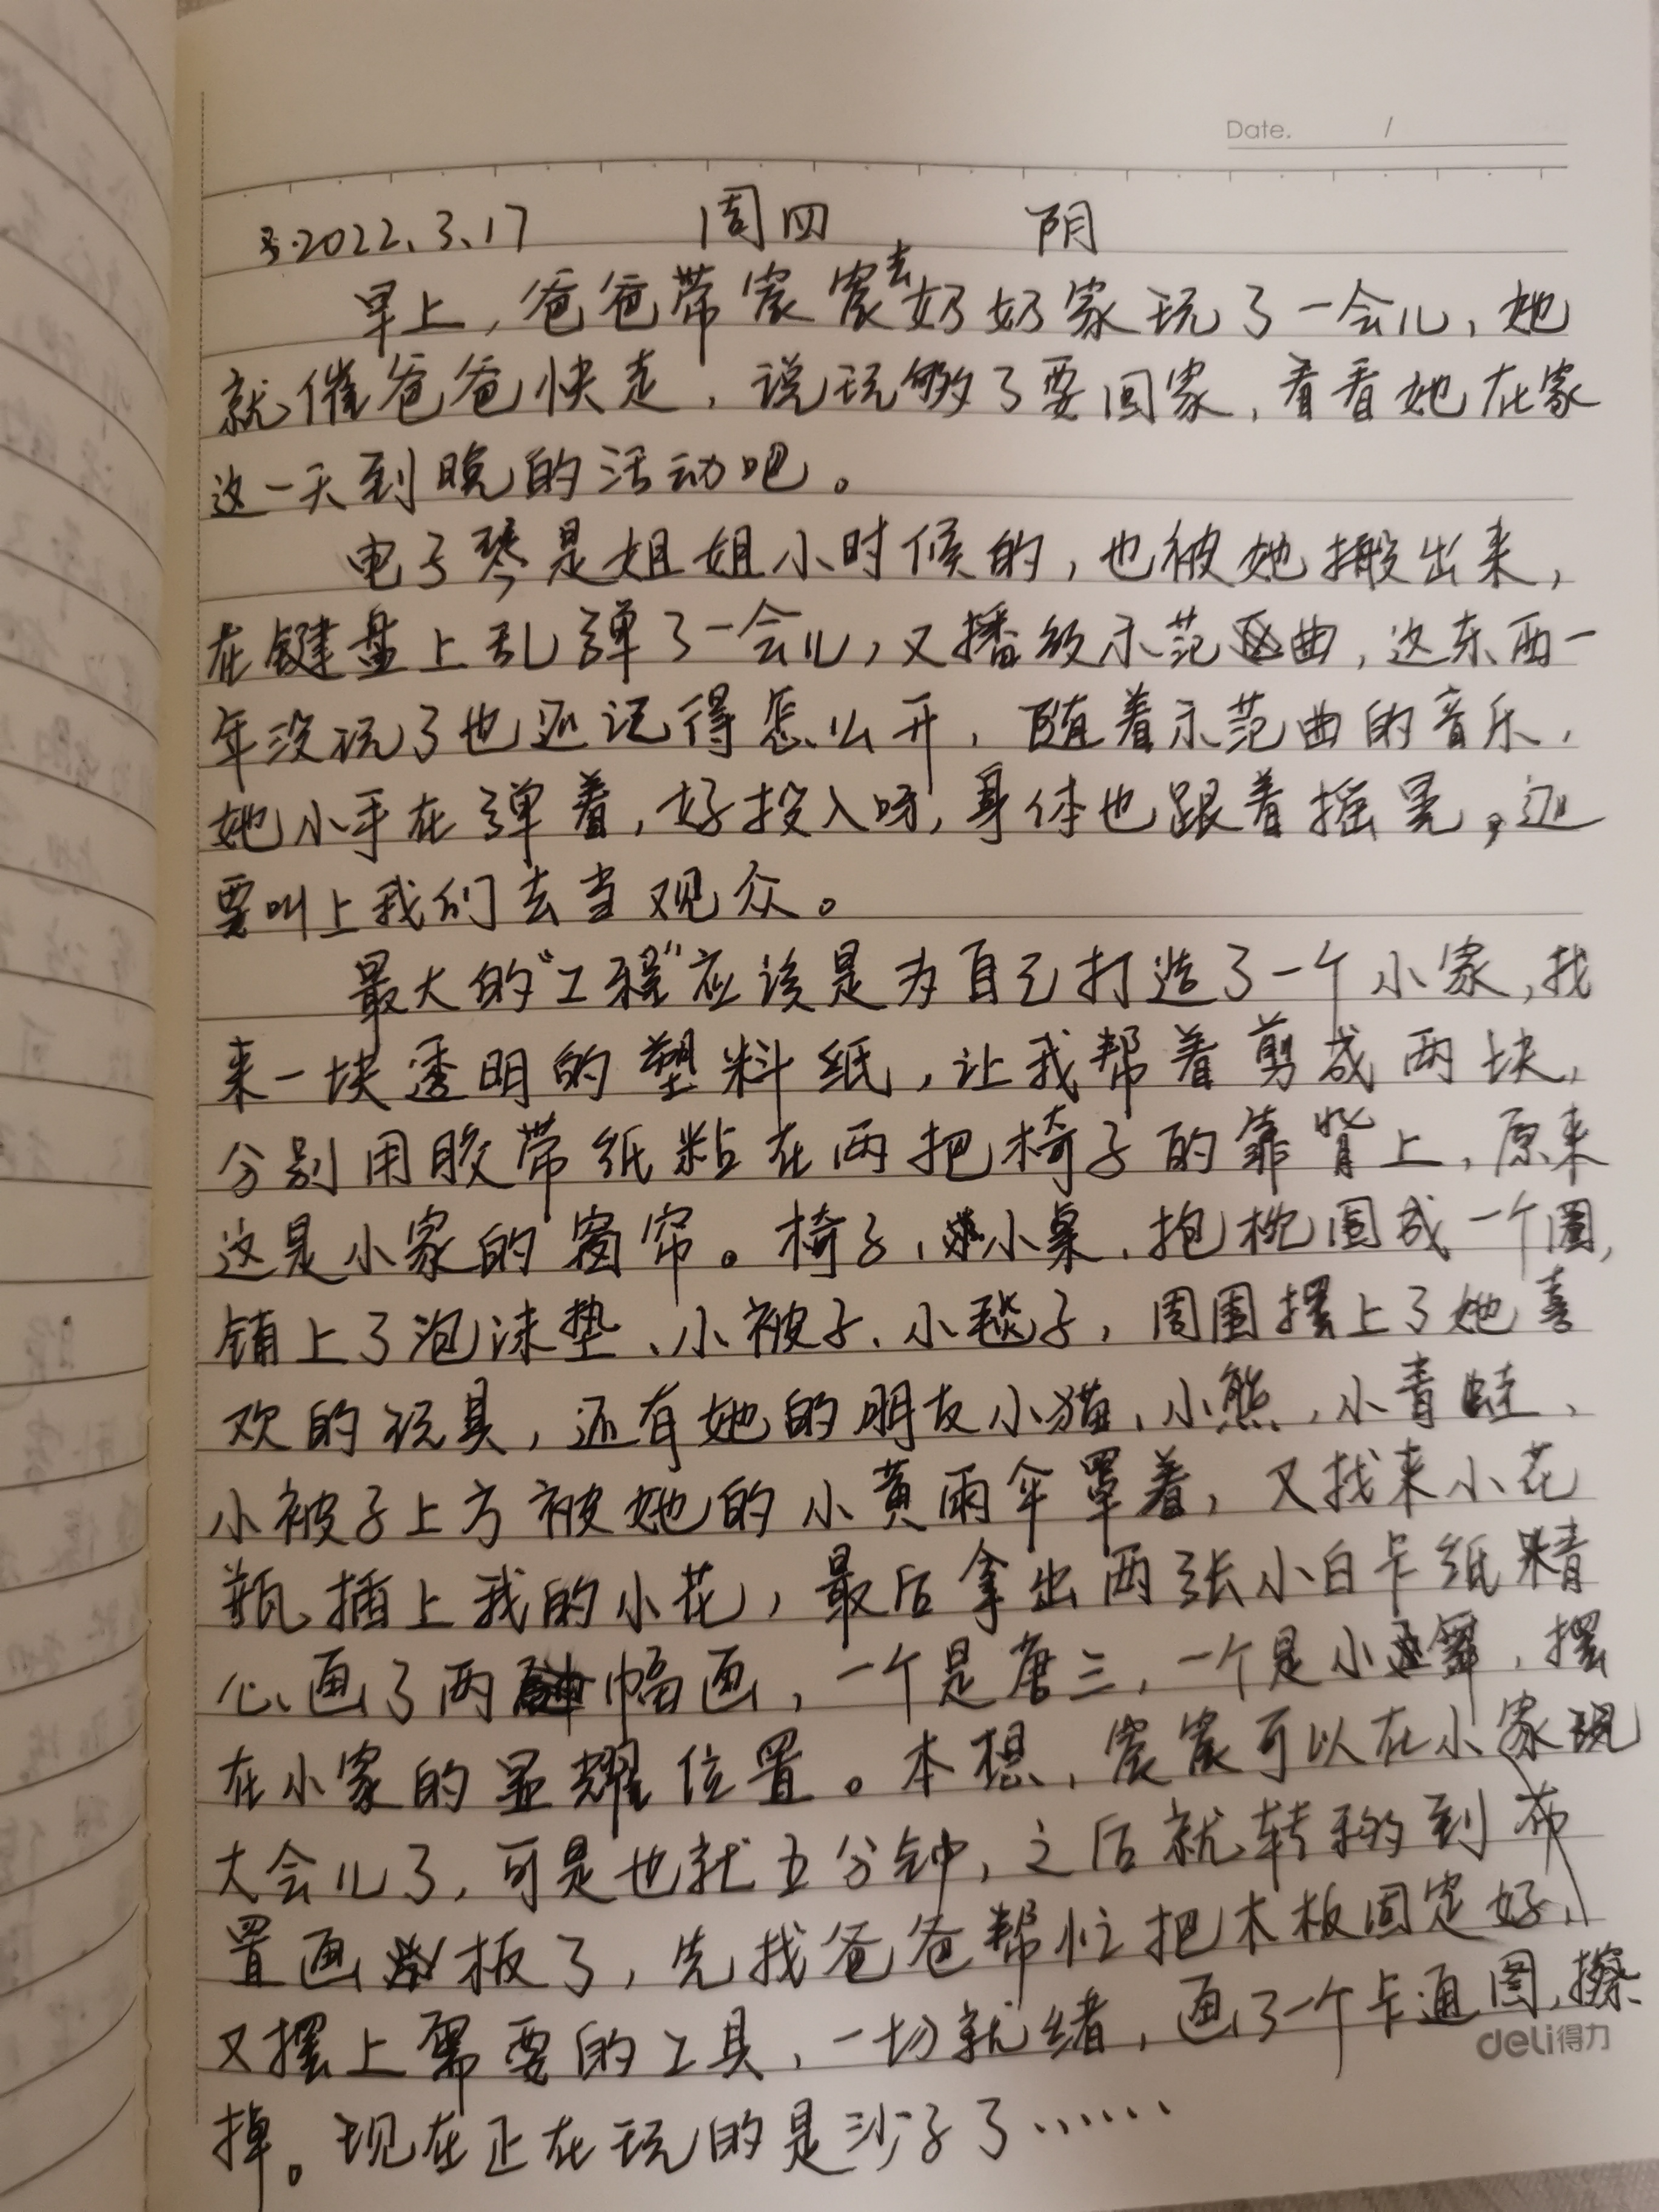 Date. /
3.2022.3.17 周四 阴
早上，爸爸带宸宸去奶奶家玩了一会儿，她
就催爸爸快走，说玩够了要回家，看看她在家
这一天到晚的活动吧。
电子琴是姐姐小时候的，也被她搬出来，
在键盘上乱弹了一会儿，又播放示范曲，这东西一
年没玩了也还记得怎么开，随着示范曲的音乐，
她小手在弹着，好投入呀，身体也跟着摇晃，还
要叫上我们去当观众。
最大的“工程”应该是为自己打造了一个小家，找
来一块透明的塑料纸，让我帮着剪成两块，
分别用胶带纸粘在两把椅子的靠背上，原来
这是小家的窗帘。椅子、小桌、抱枕围成一个圈，
铺上了泡沫垫、小被子、小毯子，周围摆上了她喜
欢的玩具，还有她的朋友小猫、小熊、小青蛙、
小被子上方被她的小黄雨伞罩着，又找来小花
瓶插上我的小花，最后拿出两张小白卡纸精
心画了两幅画，一个是唐三，一个是小舞，摆
在小家的显耀位置。本想，宸宸可以在小家玩
大会儿了，可是也就五分钟，之后就转移到布
置画板了，先找爸爸帮忙把木板固定好，
又摆上需要的工具，一切就绪，画了一个卡通图，擦
掉。现在正在玩的是沙子了……
deli得力